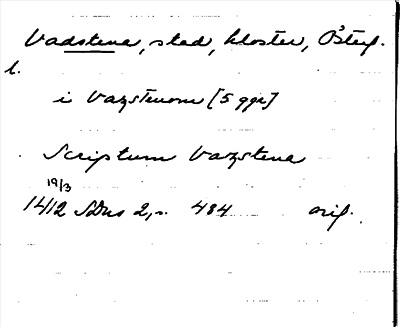 Vadstena, stad, kloster, Östergl.
l.
i Vazstenom [5 ggr]
Scriptum Vazstena
19/3
1412 SDns 2, s. 484 orig.